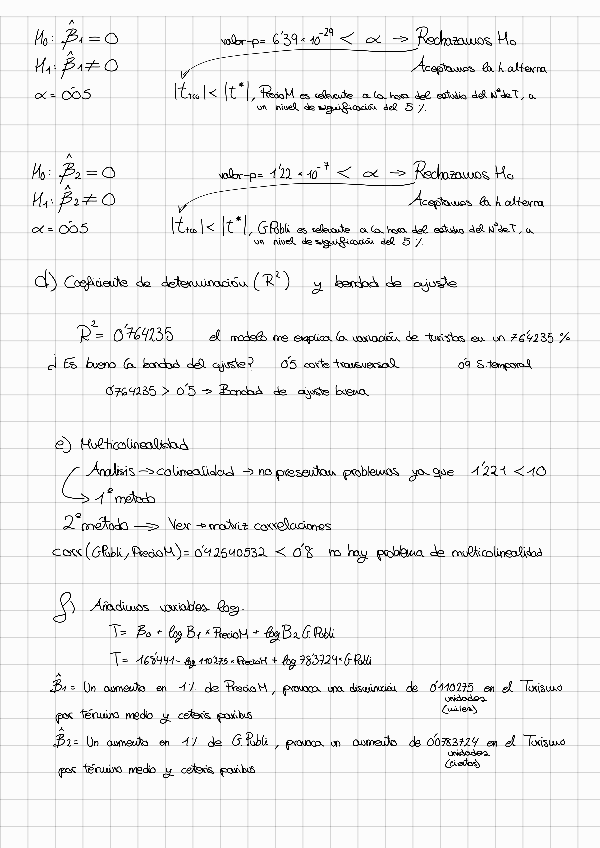 H₀: β̂₁ = 0 valor-p = 6'39 × 10⁻²⁹ < α → Rechazamos H₀
H₁: β̂₁ ≠ 0 Aceptamos la h alterna
α = 0'05 |tₜₑₒ| < |t*|, PrecioM es relevante a la hora del estudio del NºdeT, a
un nivel de significación del 5 %.
H₀: β̂₂ = 0 valor-p = 1'22 × 10⁻⁷ < α → Rechazamos H₀
H₁: β̂₂ ≠ 0 Aceptamos la h alterna
α = 0'05 |tₜₑₒ| < |t*|, G.Publi es relevante a la hora del estudio del NºdeT, a
un nivel de significación del 5 %.
d) Coeficiente de determinación (R²) y bondad de ajuste
R² = 0'764235 el modelo me explica la variación de turistas en un 76'4235 %
¿Es buena la bondad del ajuste? 0'5 corte transversal 0'9 S.temporal
0'764235 > 0'5 → Bondad de ajuste buena
e) Multicolinealidad
Analisis → colinealidad → no presentan problemas ya que 1'221 < 10
→ 1º metodo
2º método → Ver → matriz correlaciones
corr(G.Publi, PrecioM) = 0'42540532 < 0'8 no hay problema de multicolinealidad
f) Añadimos variables log.
T = B₀ + log B₁ × PrecioM + log B₂ G.Publi
T = 168441 - log 110275 × PrecioM + log 783724 · G.Publi
β̂₁ = Un aumento en 1% de PrecioM, provoca una disminución de 0'110275 en el Turismo
unidades
(miles)
por término medio y ceteris paribus
β̂₂ = Un aumento en 1% de G.Publi, provoca un aumento de 0'0783724 en el Turismo
unidades
por término medio y ceteris paribus